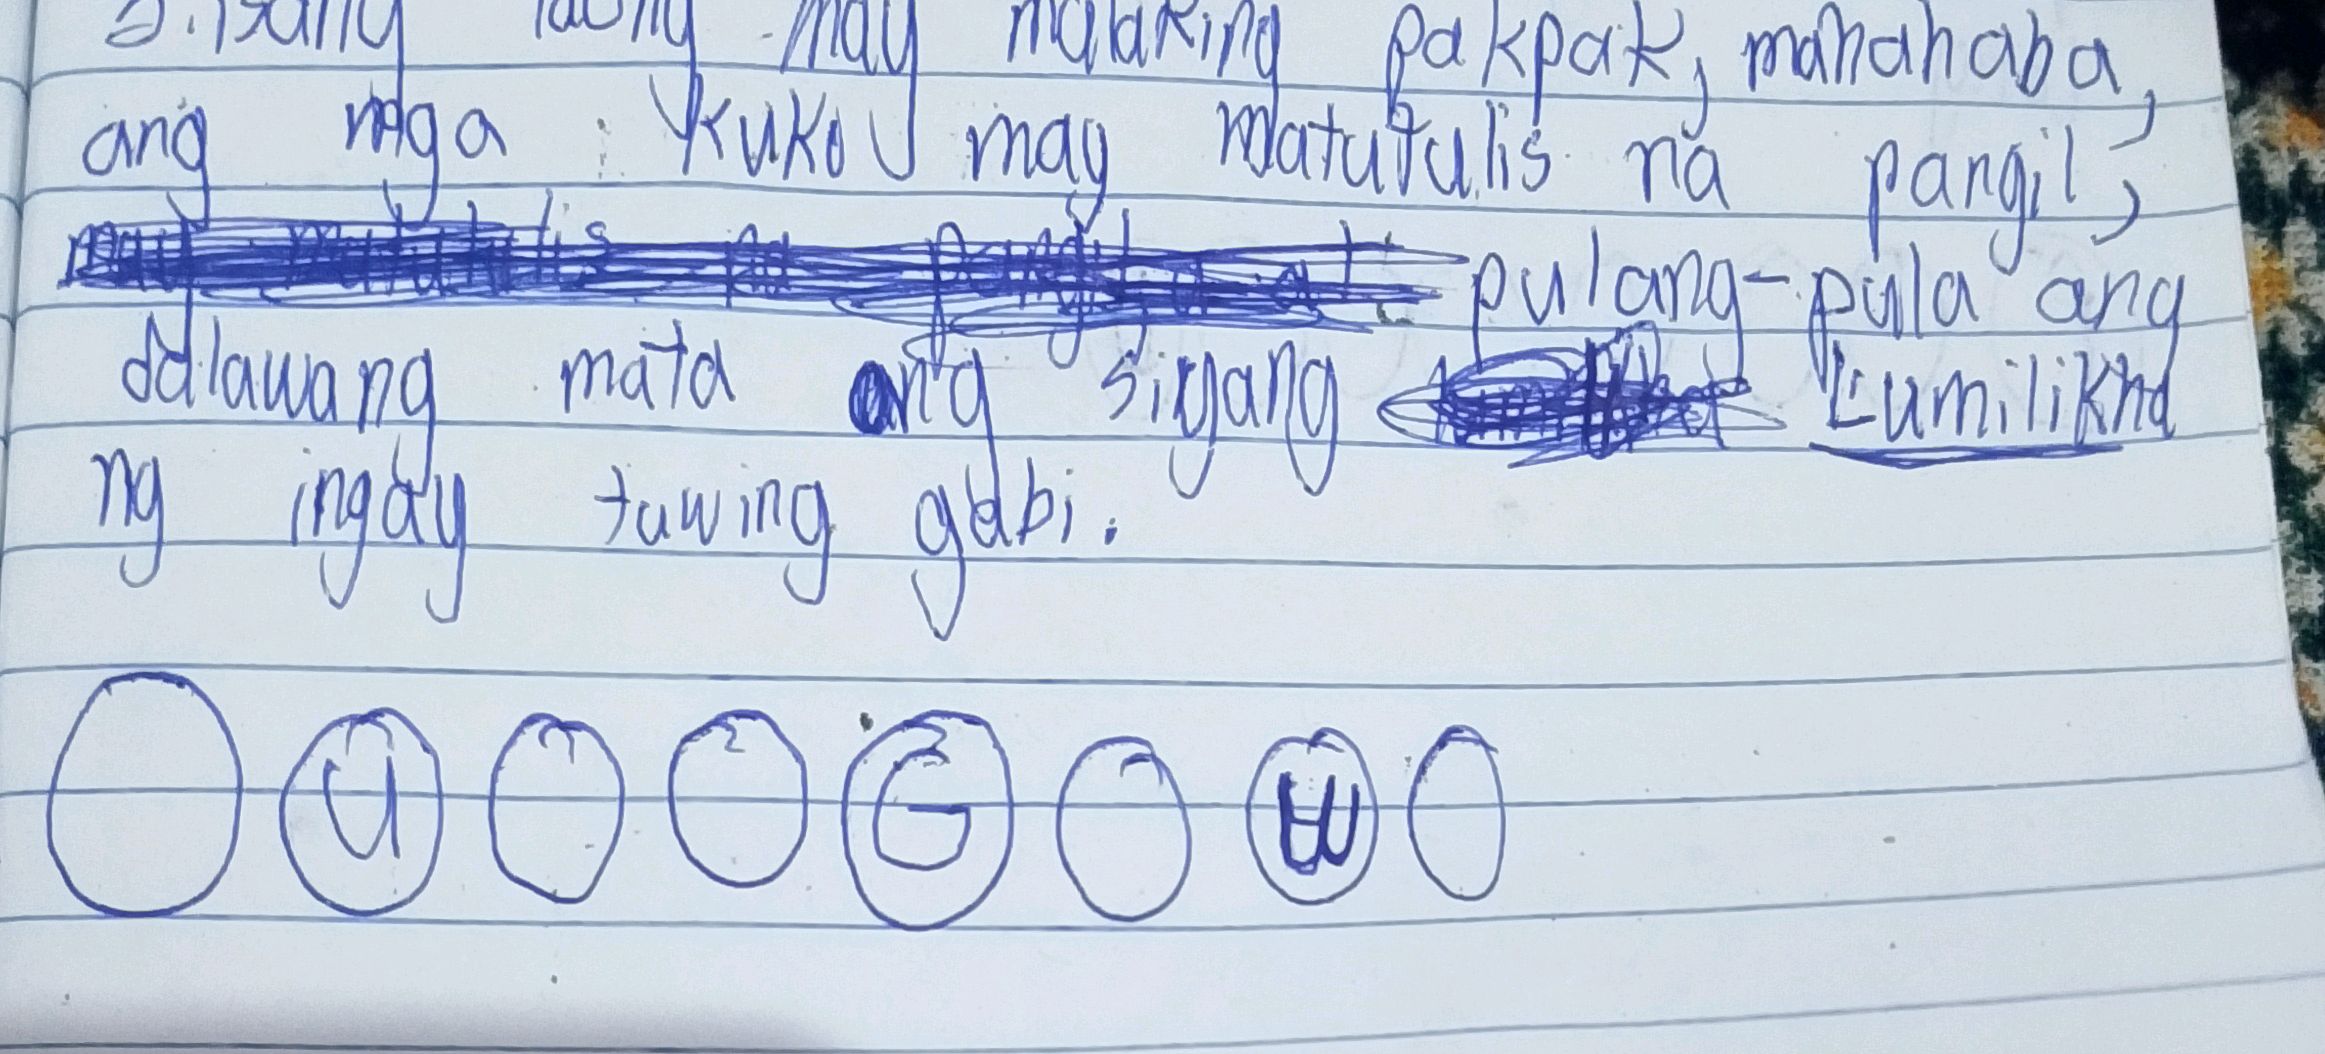 Isang may malaking pakpak, mahahaba,
ang mga kuko may matutulis na pangil,
pulang-pula ang
dalawang mata ang siyang Lumilikha
ng ingay tuwing gabi.
U G